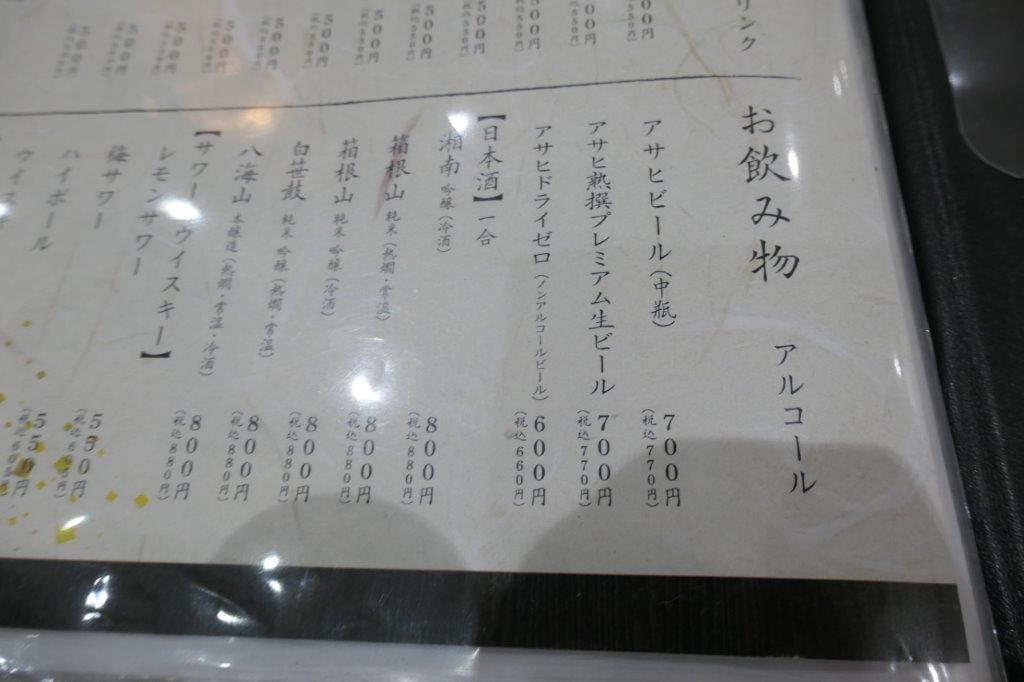 リンク
500円
(税込550円)
500円
(税込550円)
500円
(税込550円)
500円
(税込550円)
500円
(税込550円)
500円
(税込550円)
500円
500円
500円
500円
500円
お飲み物 アルコール
アサヒビール(中瓶) 700円
(税込770円)
アサヒ熟撰プレミアム生ビール 700円
(税込770円)
アサヒドライゼロ(ノンアルコールビール) 600円
(税込660円)
【日本酒】一合
湘南 吟醸(冷酒) 800円
(税込880円)
箱根山 純米(熱燗・常温) 800円
(税込880円)
箱根山 純米 吟醸(冷酒) 800円
(税込880円)
白笹鼓 純米 吟醸(熱燗・常温) 800円
(税込880円)
八海山 本醸造(熱燗・常温・冷酒) 800円
(税込880円)
【サワー・ウィスキー】
レモンサワー 550円
(税込605円)
梅サワー 550円
ハイボール
ウイス